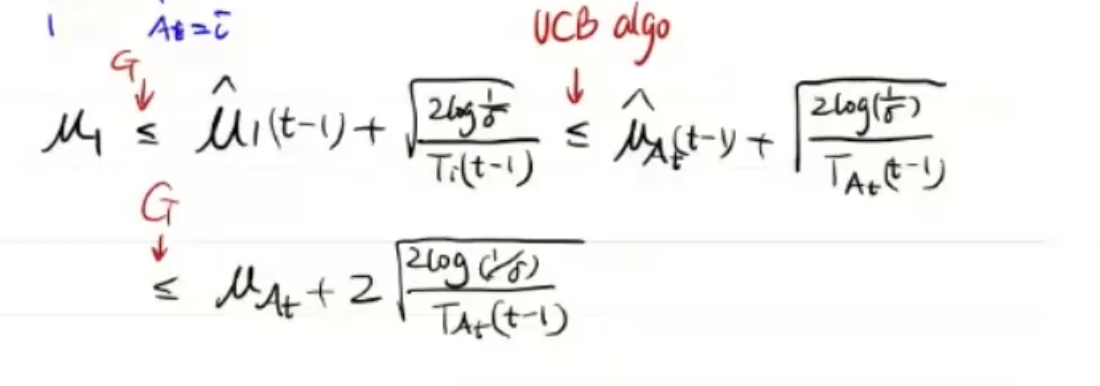 1 A_t = i
G ↓ UCB algo ↓
μ₁ ≤ μ̂₁(t-1) + √(2log 1/δ / T₁(t-1)) ≤ μ̂_{A_t}(t-1) + √(2log(1/δ) / T_{A_t}(t-1))
G ↓
≤ μ_{A_t} + 2 √(2log(1/δ) / T_{A_t}(t-1))